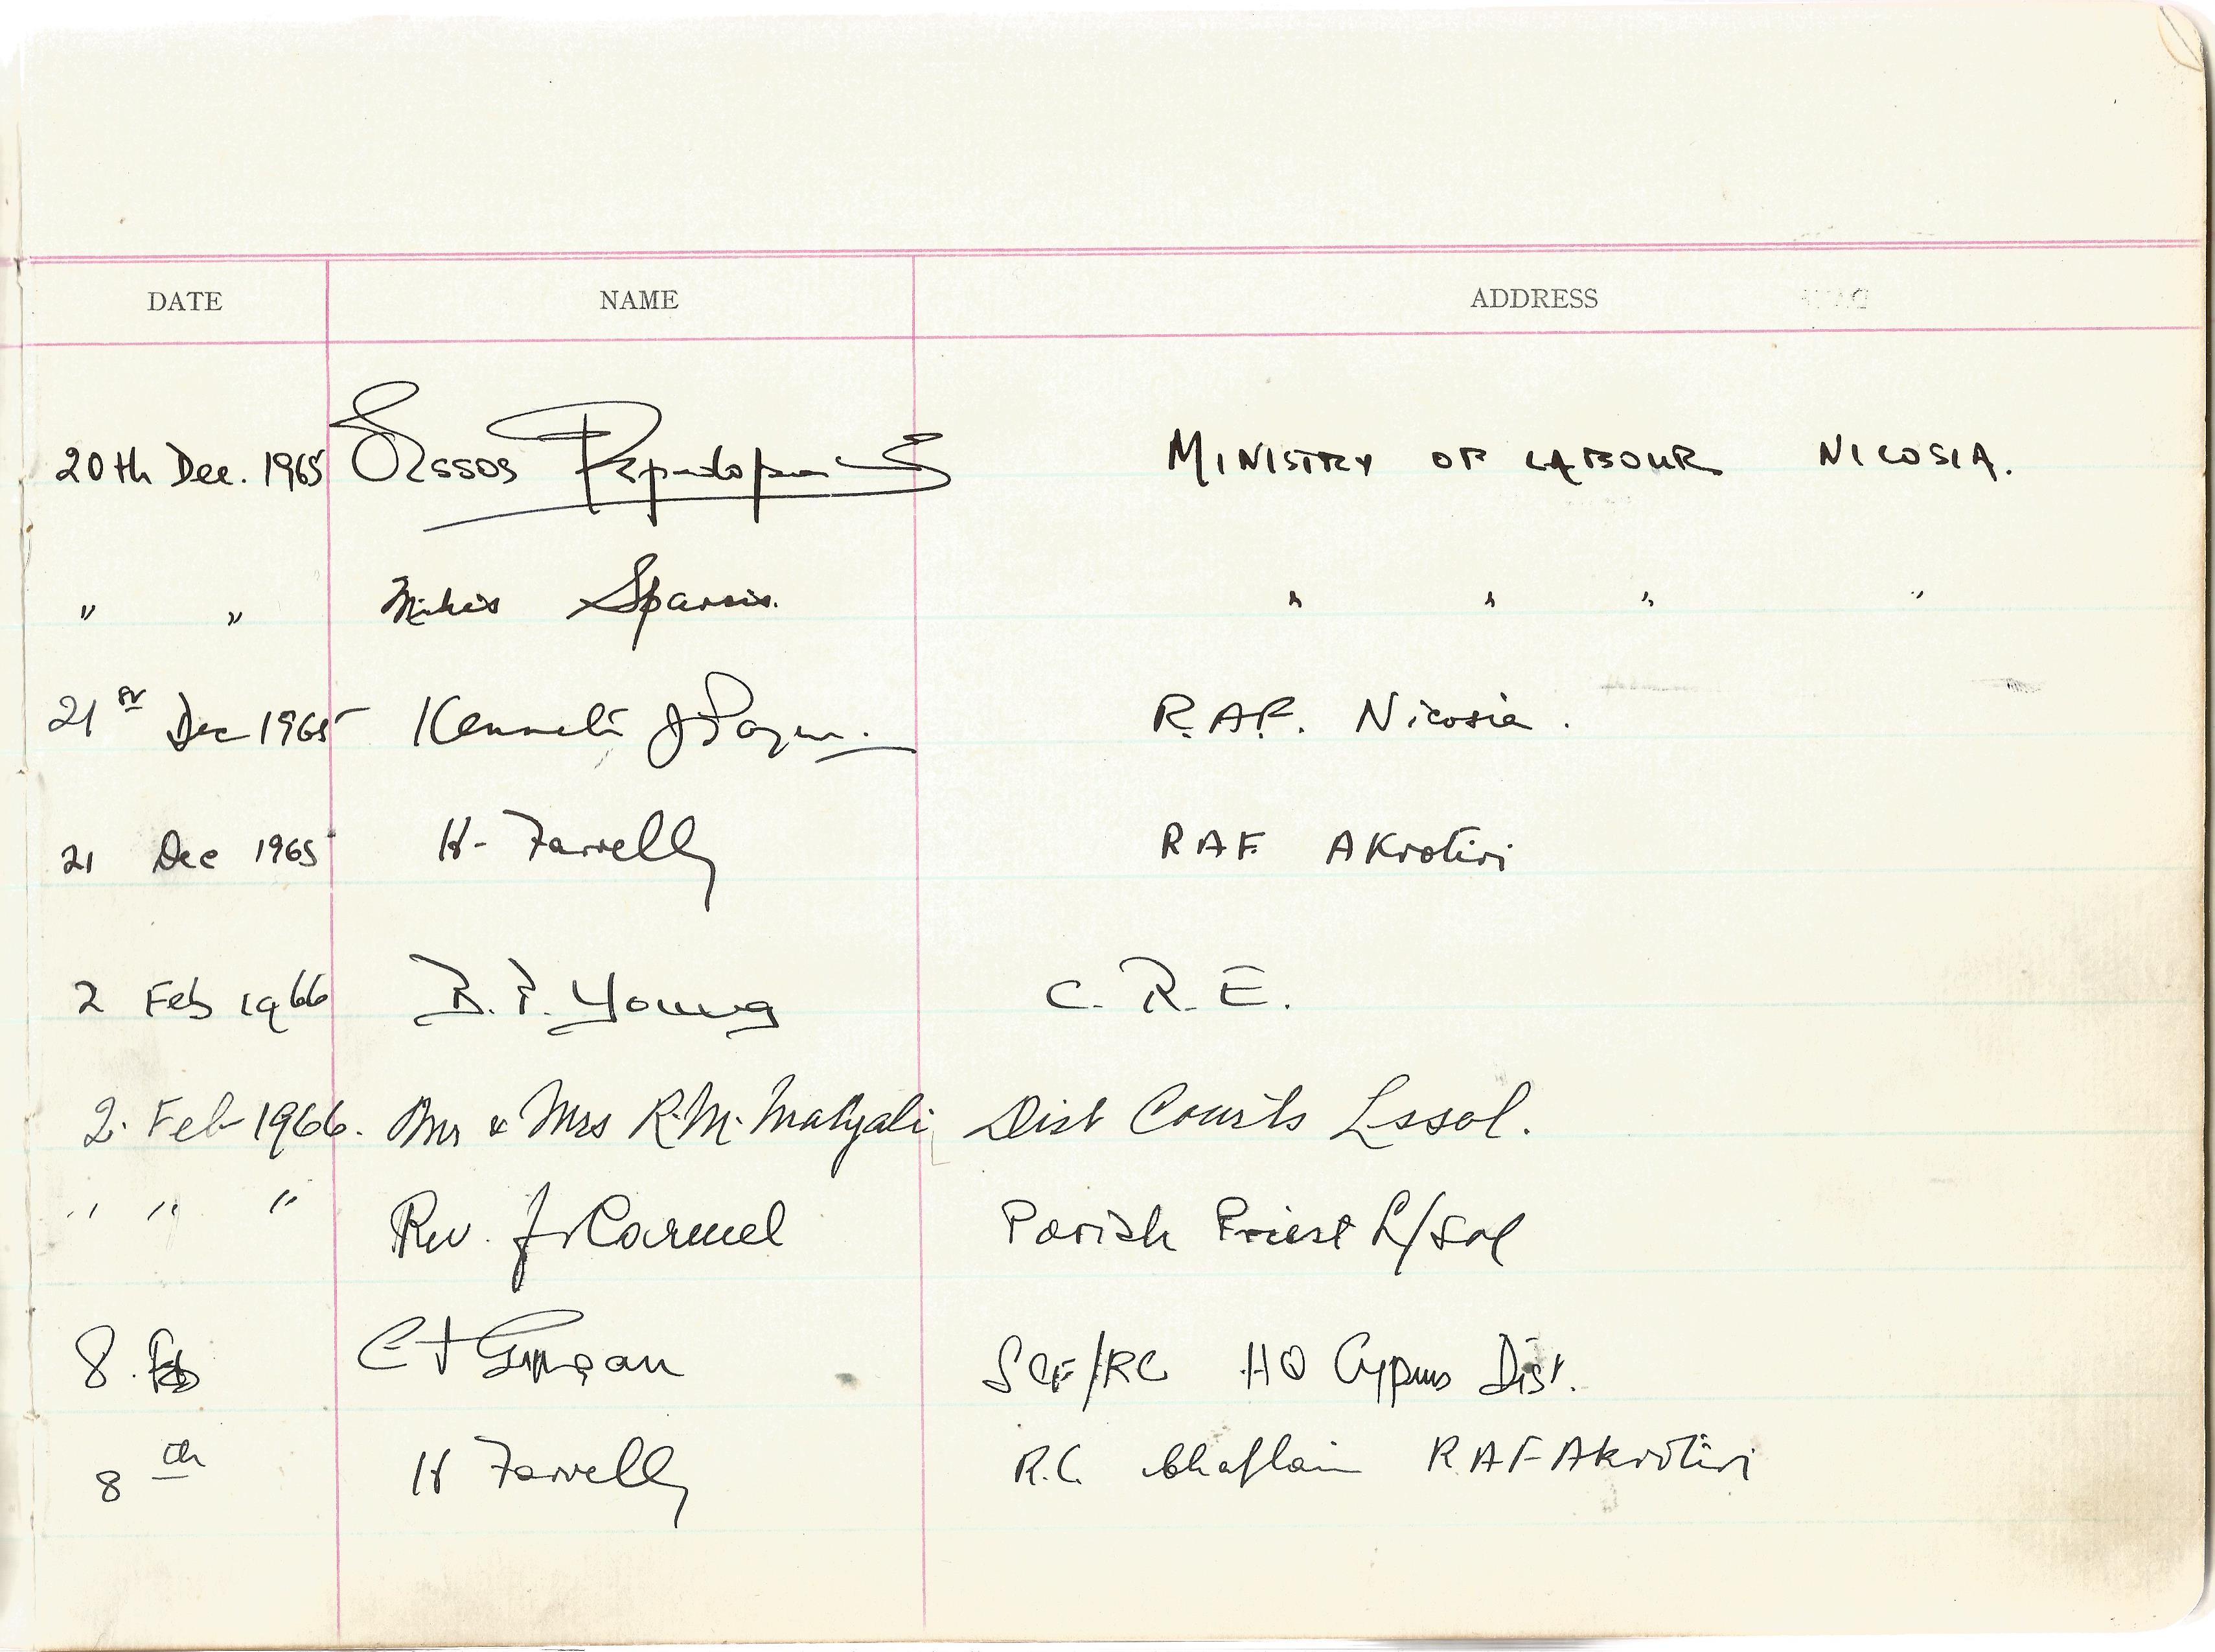 DATE NAME ADDRESS
20th Dec. 1965 Tassos Papadopoulos MINISTRY OF LABOUR NICOSIA.
" " Mikis Sparsis. " " " "
21st Dec 1965 Kenneth J R.A.F. Nicosia.
21 Dec 1965 H. Farrelly RAF Akrotiri
2 Feb 1966 B. P. Young C. R. E.
2. Feb 1966. Mr & Mrs R.M. Dist Courts L/ssol.
" " " Rev. J. Carmel Parish Priest L/sol
8. Feb SCF/RC HQ Cyprus Dist.
8th H Farrelly R.C. Chaplain RAF Akrotiri